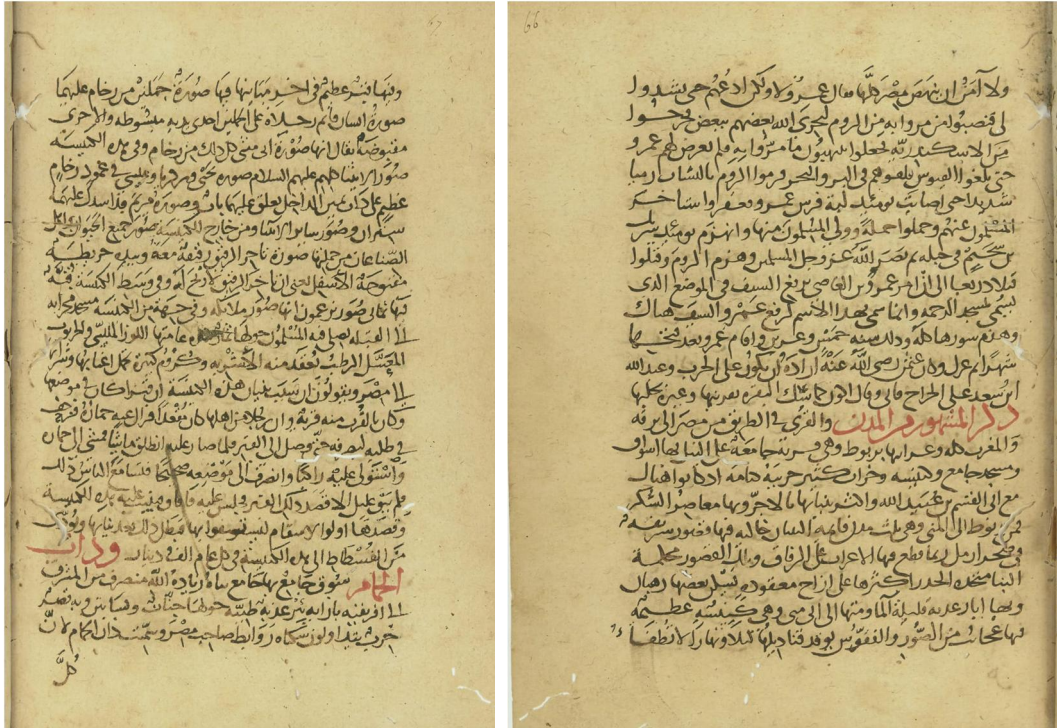 66
ولا آمن ان ينهض مصر كلها فقال عمرو لا ولكن ادعهم حتى يسيروا
الي فيصيبوا من مروا به من الروم فيخزى الله بعضهم ببعض فخرجوا
من الاسكندرية فجعلوا ينهبون ما مروا به فلم يعرض لهم عمرو
حتى بلغوا نقيوس فلقوهم في البر والبحر فرموا الروم بالنشاب رميا
شديدا حتى اصابت يومئذ لبة فرس عمرو فعقر واستاخر
المسلمون عنهم وحملوا حملة وولي المسلمون منها وانهزم يومئذ شريك
بن سحيم في خيله ثم نصر الله عز وجل المسلمين وهزم الروم وقتلوا
قتلا ذريعا الى ان امر عمرو بن العاصي برفع السيف في الموضع الذي
يسمى بمسجد الرحمة وانما سمي بهذا الاسم لرفع عمرو السيف هناك
وهدم سورها كله وذلك سنة خمس وعشرين واقام عمرو بعد فتحها
شهرا ثم عزل وكان عثمن رضي الله عنه اراد ان يكون على الحرب وعبد الله
ابن سعد على الخراج فابى وقال انا كماسك البقرة بقرنيها وغيره يحلبها
ذكر المشهور من المدن والقرى في الطريق من مصر الى برقه
والمغرب كله فمن ترنوط وهي قرية جامعة على النيل بها اسواق
ومسجد جامع وكنيسه وخراب كثير خربته كتامه اذ كانوا هناك
مع ابي القسم بن عبيد الله واكثر بنيانها بالاجر وبها معاصر السكر
فمن ترنوط الى المنى وهي ثلث مدن قايمة البنيان خالية فيها قصور شريفة
في صحرا رمل ربما قطع فيها الاعراب على الرفاق وتلك القصور محكمة
البنا منجدة الجدر اكثرها على ازاج معقوده يسكن بعضها رهبان
وبها ابار عذبة قليلة الما ومنها الى ابي مينا وهي كنيسه عظيمة
فيها عجايب من الصور والنقوش يوقد قناديلها ليلا ونهارا لا تطفا
67
وفيها قبر عظيم في اخر مبانيها فيها صورة جملين من رخام عليهما
صورة انسان قائم رجلاه على الجملين احدى يديه مبسوطه والاخرى
مقبوضة يقال انها صورة ابي مينا كل ذلك من رخام وفي هذه الكنيسه
صور الانبيا كلهم عليهم السلام صورة يحيى وزكريا وعيسى في عمود رخام
عظيم على يمين الداخل يغلق عليها باب وصورة مريم قد اسدل عليها
ستران وصور سائر الانبيا ومن خارج الكنيسة صور جميع الحيوان واهل
الصناعات من جملتها صورة تاجر الرقيق ورقيقه معه وبيده خريطة
مفتوحة الاسفل يعني ان تاجر الرقيق لا ربح له وفي وسط الكنيسة قبة
فيها ثماني صور يزعمون انها صور ملائكه وفي جهة من الكنيسة مسجد محرابه
الى القبله يصلي فيه المسلمون وحولها ثمار كثيرة عامتها اللوز الاملس والخروب
المعسل الرطب يعقد منه الاشربه وكروم كثيرة تحمل اعنابها وشرابها
الى مصر ويقولون ان سبب بنيان هذه الكنيسة ان قبرا كان في موضعها
وكان بالقرب منه قرية وان رجلا من اهلها كان مقعدا فزال عنه حماره فزحف
في طلبه ليصرفه حتى وصل الى القبر فلما صار عليه انطلق ماشيا فمشى الى حماره
واستولى عليه راكبا وانصرف الى موضعه صحيحا فتسامع الناس ذلك
فلم يبق عليل الا قصد ذلك القبر وجلس عليه فافاق فبنيت عليه هذه الكنيسة
وقصدها اولوا الاسقام ليستشفوا بها فبطل ذلك بعد بنائها ويؤدى
من القسطنطينيه الى هذه الكنيسة في كل عام الف دينار وذات
الحمام سوق جامع بها جامع بناه زيادة الله منصرفه من المشرق
الى افريقيه بازايه بئر عذبة طيبه حولها جنات وبساتين وبه قصر
خرب بنيانه اولون سكانه روابط صاحب مصر وسميت ذات الحمام لان
كل